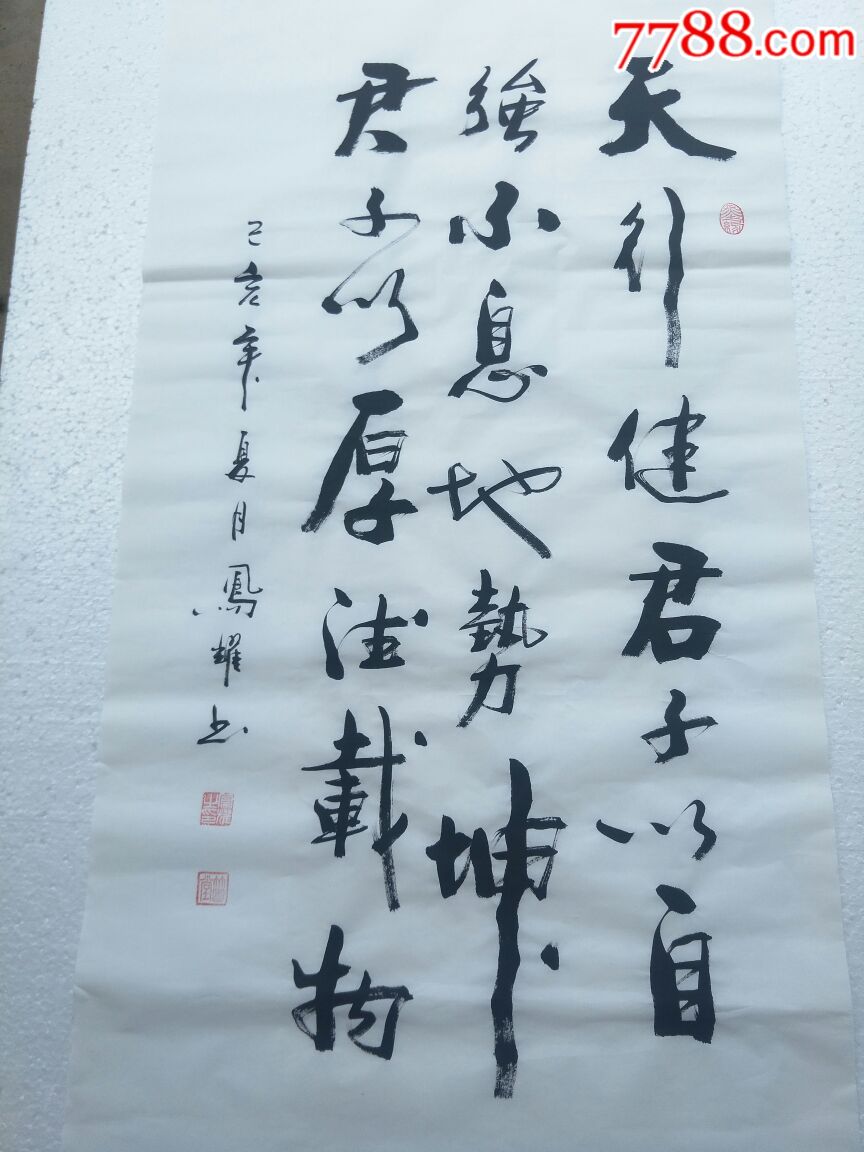 7788.com
天行健君子以自
強不息地勢坤
君子以厚德載物
己亥年夏月鳳耀书